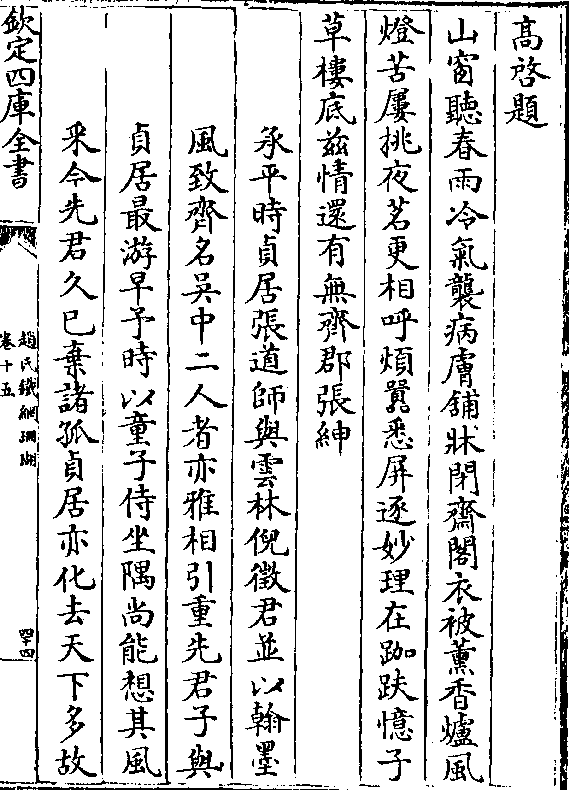 高啓題
山窗聽春雨冷氣襲病膚舖牀閉齋閣衣被薫香爐風
燈苦屢挑夜茗更相呼煩囂悉屏逐妙理在跏趺憶子
草樓底兹情還有無齊郡張紳
承平時貞居張道師與雲林倪徵君並以翰墨
風致齊名吳中二人者亦雅相引重先君子與
貞居最游早予時以童子侍坐隅尚能想其風
釆今先君久已棄諸孤貞居亦化去天下多故
欽定四庫全書
趙氏鐵網珊瑚
卷十五
四十四